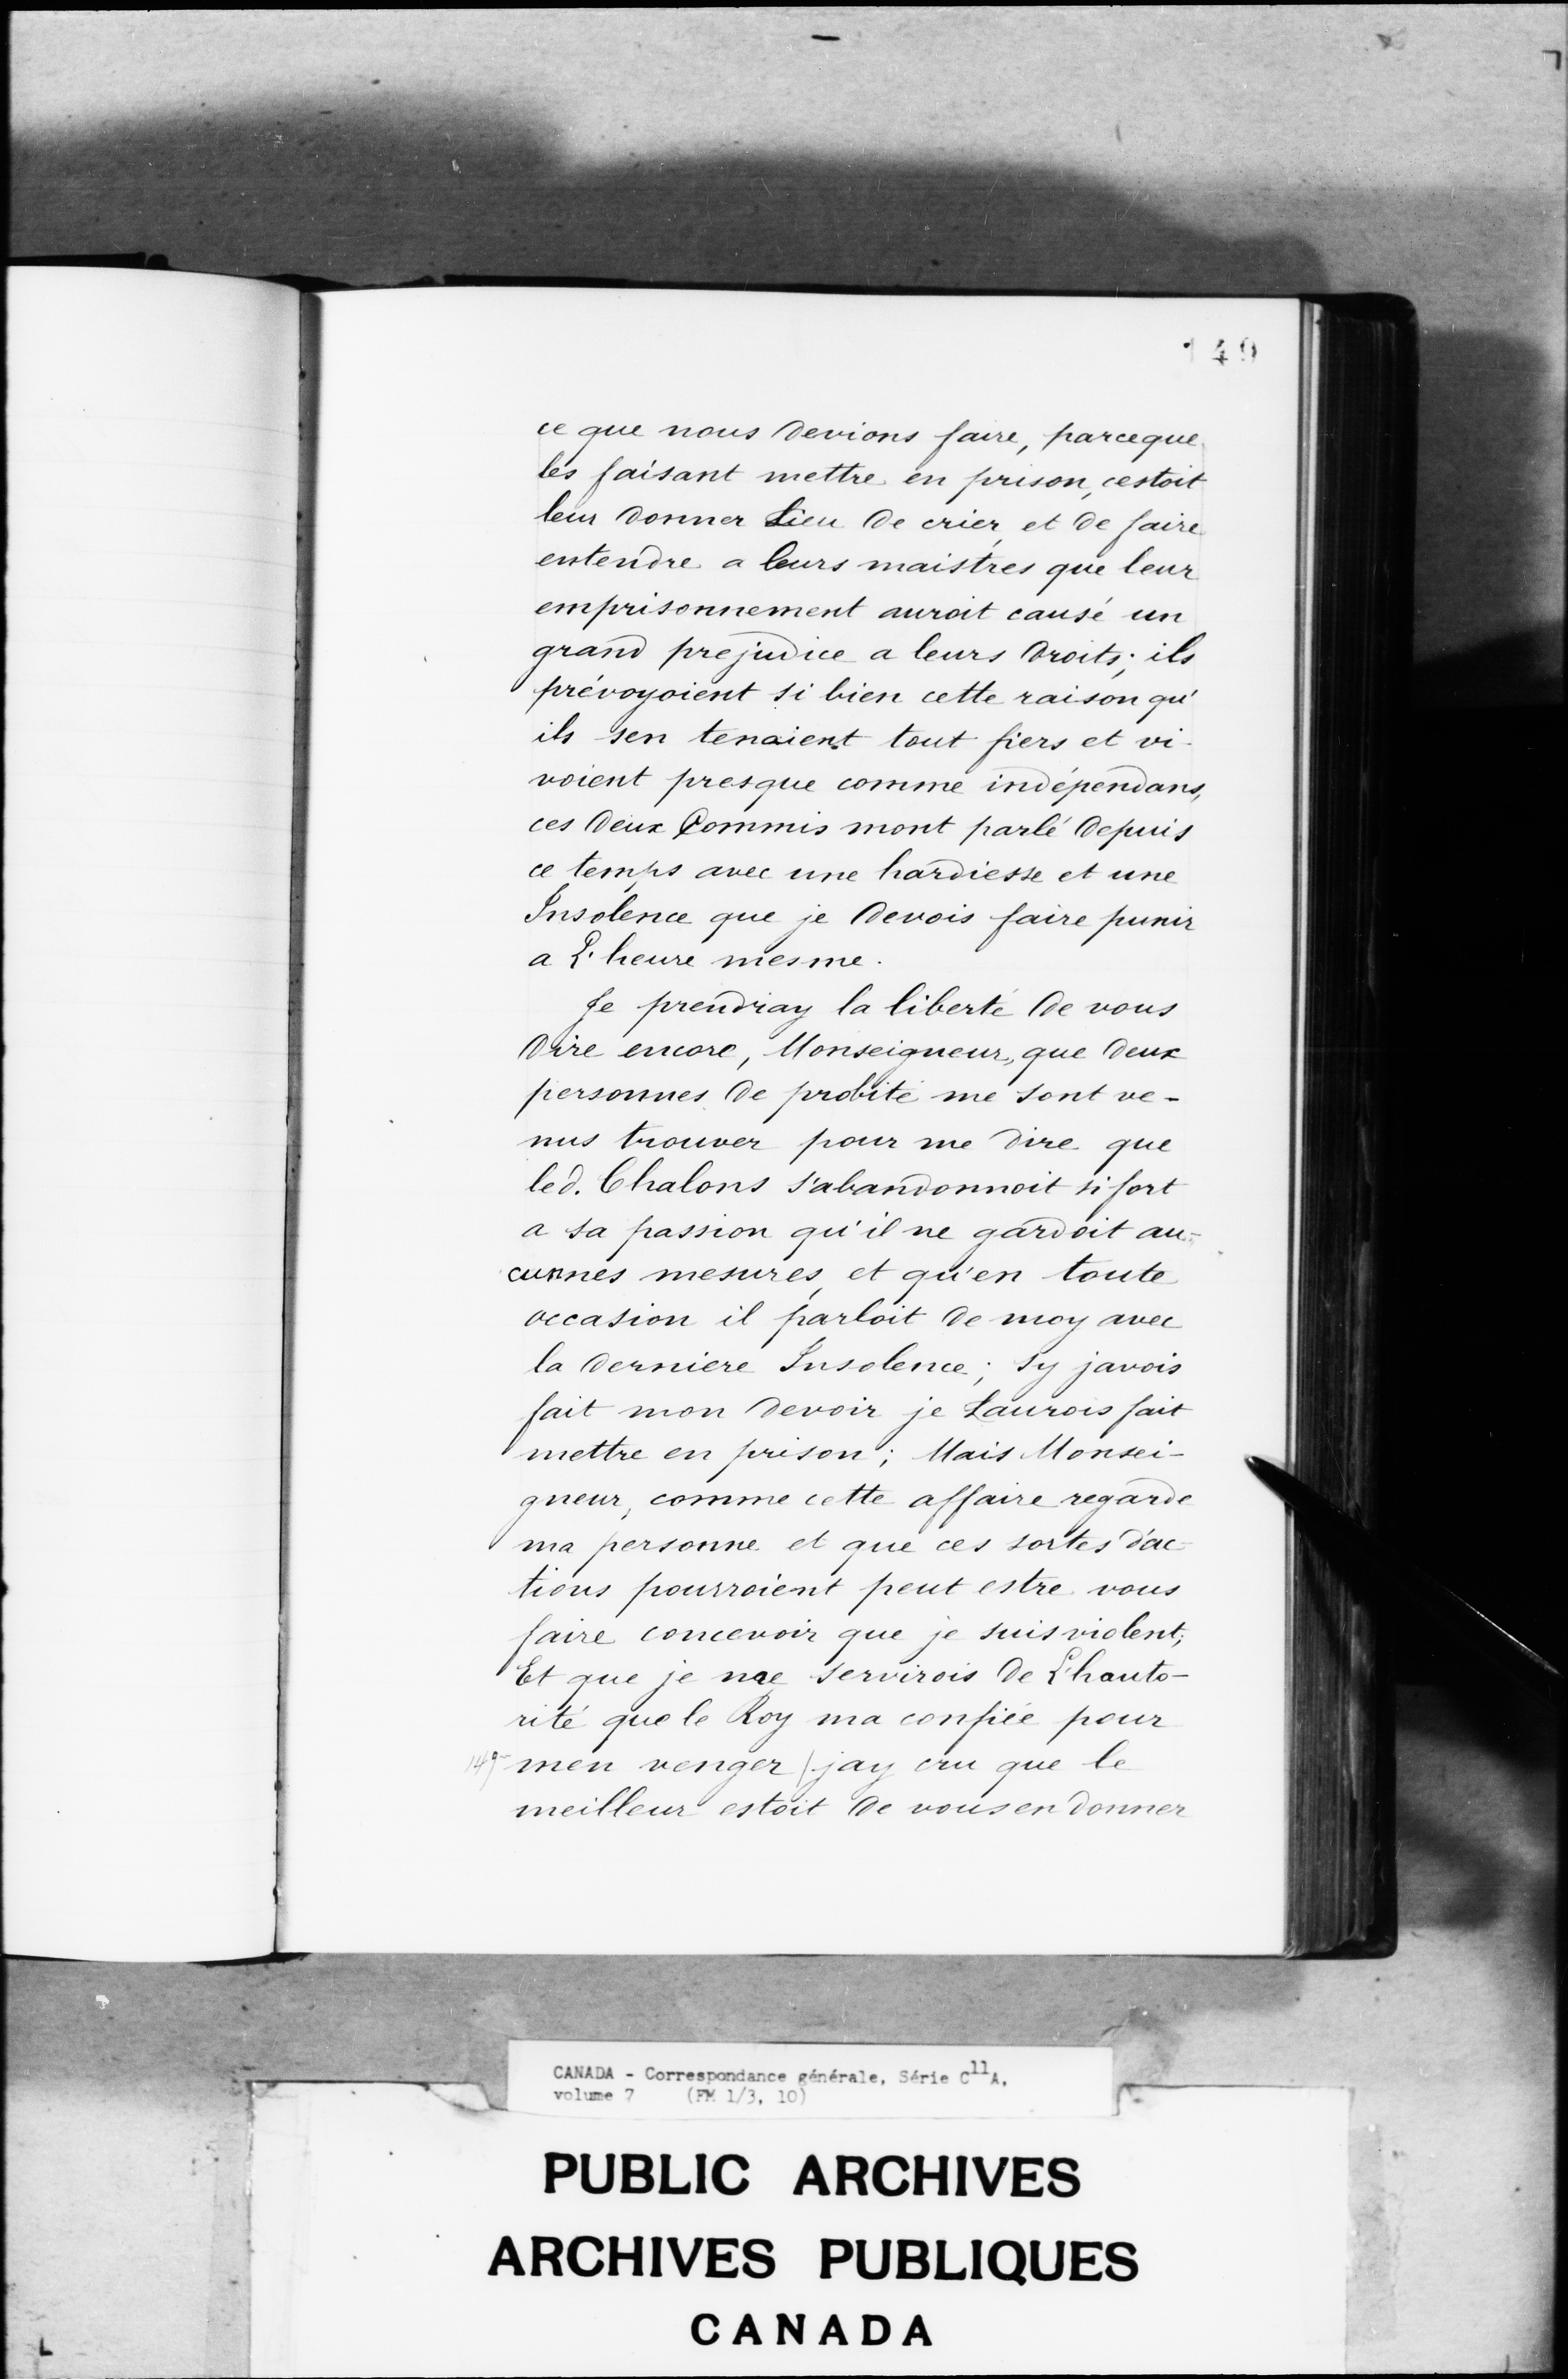 149
ce que nous devions faire, parceque
les faisant mettre en prison, cestoit
leur donner Lieu de crier, et de faire
entendre a leurs maistres que leur
emprisonnement auroit causé un
grand prejudice a leurs droits; ils
prévoyoient si bien cette raison qu'
ils sen tenaient tout fiers et vi-
voient presque comme indépendans,
ces deux Commis mont parlé depuis
ce temps avec une hardiesse et une
Insolence que je devois faire punir
a L'heure mesme.
Je prendray la liberté de vous
dire encore, Monseigneur, que deux
personnes de probité me sont ve-
nus trouver pour me dire que
led. Chalons s'abandonnoit si fort
a sa passion qu'il ne gardoit au-
cunnes mesures, et qu'en toute
occasion il parloit de moy avec
la derniere Insolence; sy javois
fait mon devoir je Laurois fait
mettre en prison; Mais Monsei-
gneur, comme cette affaire regarde
ma personne et que ces sortes d'ac-
tions pourroient peut estre vous
faire concevoir que je suis violent;
Et que je me servirois de L'hauto-
rité que le Roy ma confiée pour
149 men venger / jay cru que le
meilleur estoit de vous en donner
CANADA - Correspondance générale, Série C11A,
volume 7 (FM 1/3, 10)
PUBLIC ARCHIVES
ARCHIVES PUBLIQUES
CANADA